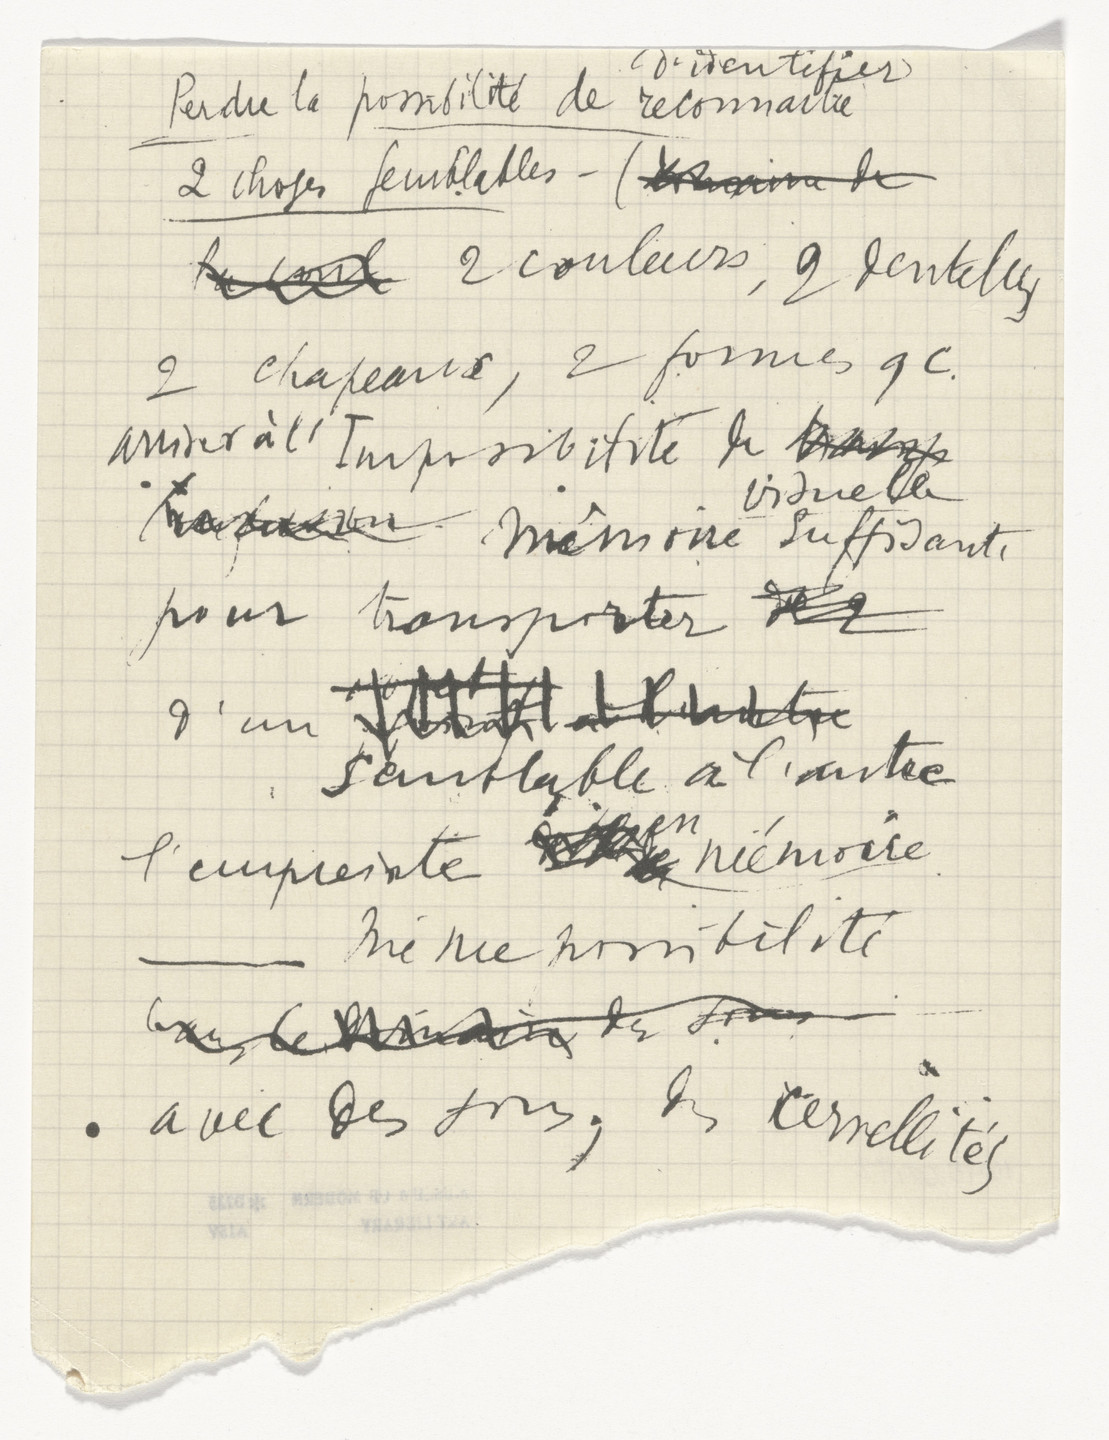 (d'identifier)
Perdre la possibilité de reconnaitre
2 choses semblables - (
2 couleurs, 2 dentelles
2 chapeaux, 2 formes qc.
arriver à l'Impossibilité de
visuelle
mémoire suffisante
pour transporter
d'un
semblable à l'autre
l'empreinte en mémoire
Même possibilité
des sons
avec des sons; des cervellités